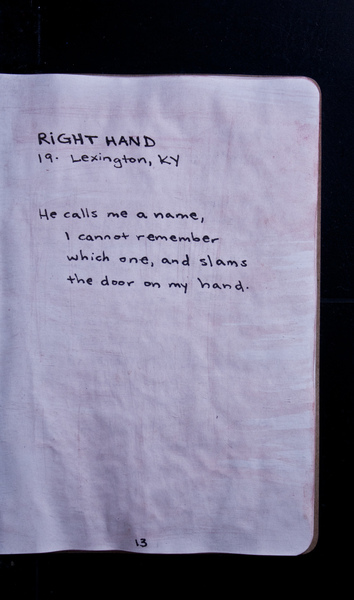 RIGHT HAND
19. Lexington, KY
He calls me a name,
I cannot remember
which one, and slams
the door on my hand.
13